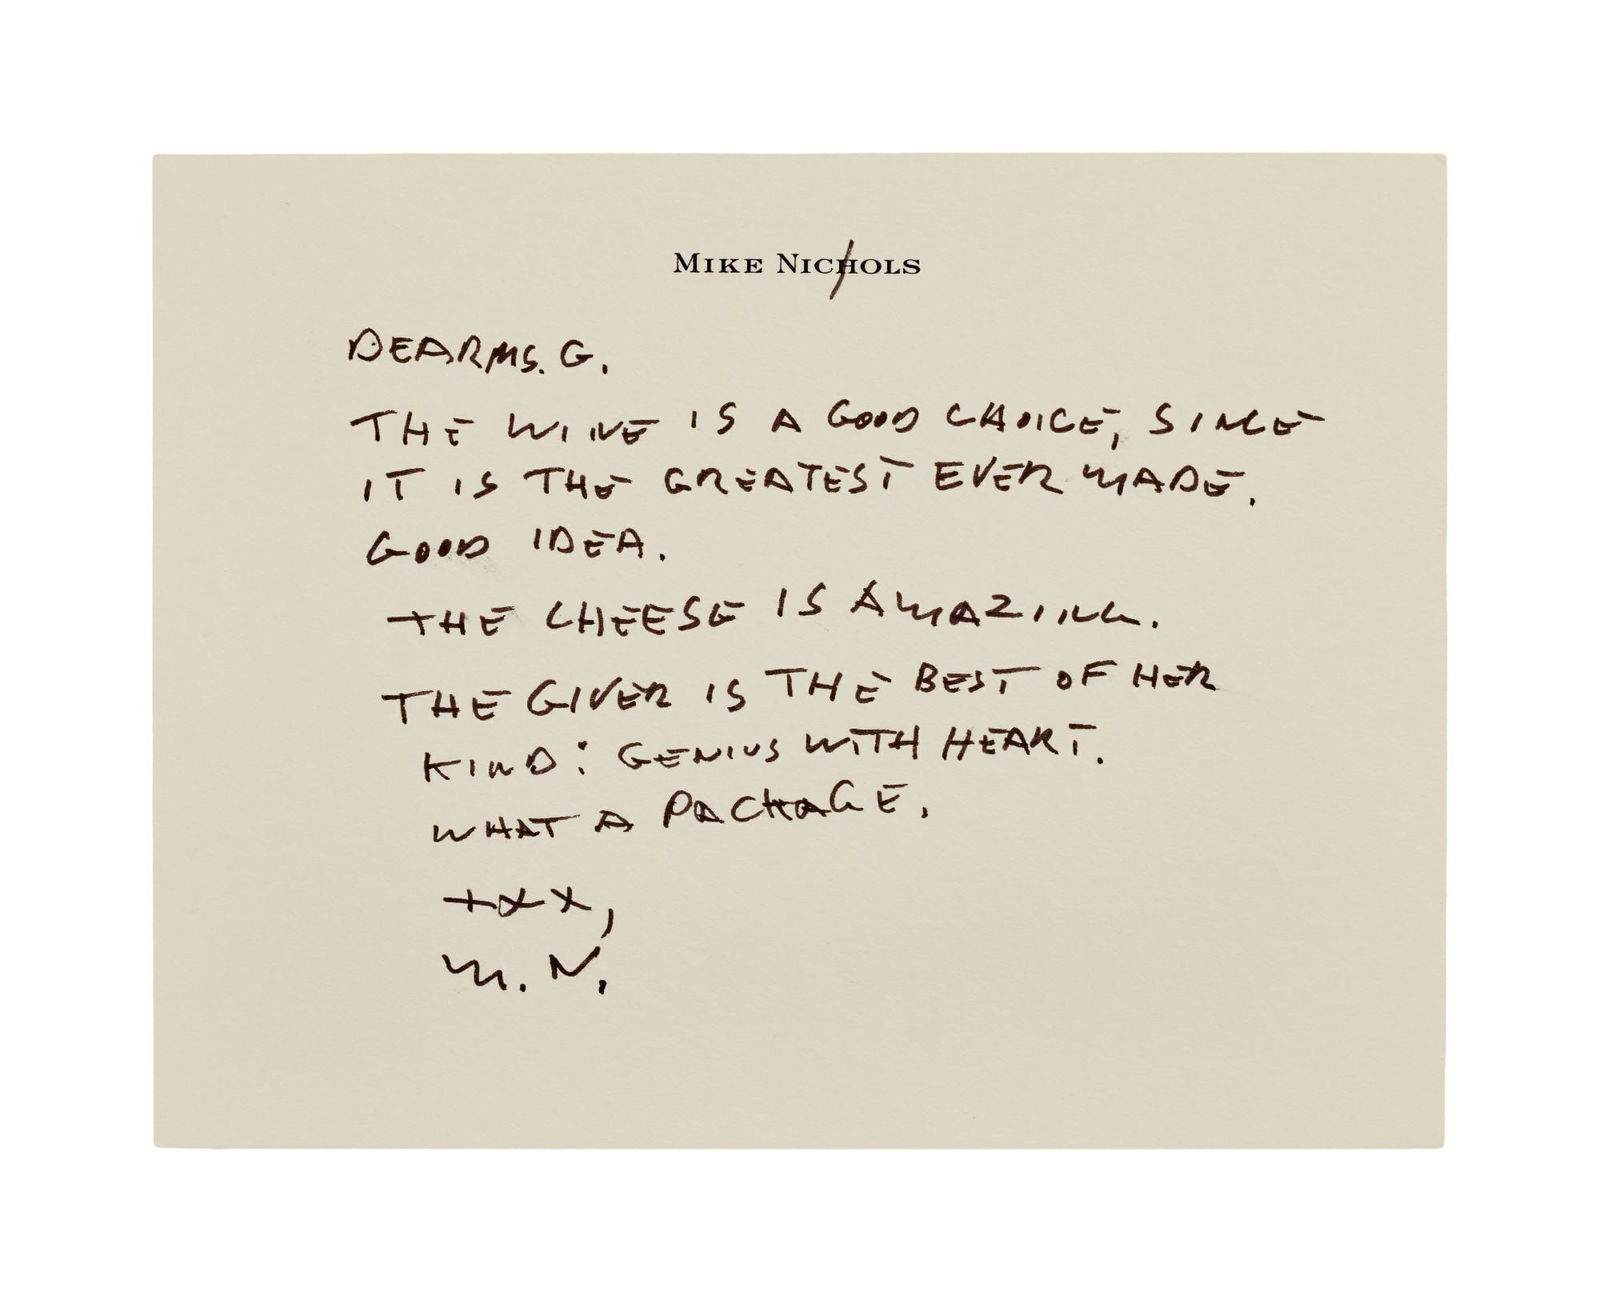 MIKE NICHOLS
DEAR MS. G.
THE WINE IS A GOOD CHOICE, SINCE
IT IS THE GREATEST EVER MADE.
GOOD IDEA.
THE CHEESE IS AMAZING.
THE GIVER IS THE BEST OF HER
KIND: GENIUS WITH HEART.
WHAT A PACKAGE.
XXX,
M. N.